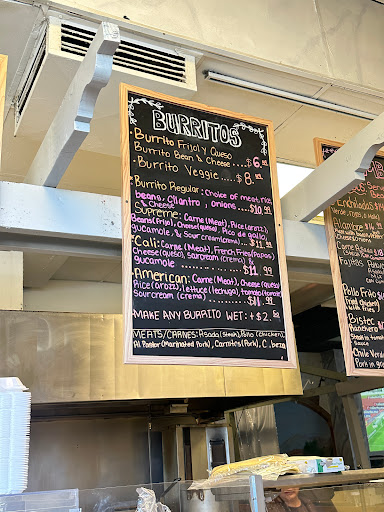 BURRITOS
• Burrito Frijol y Queso
Burrito Bean & Cheese ....$6.99
• Burrito Veggie ....$8.99
• Burrito Regular: Choice of meat, rice,
beans, cilantro, onions ....$10.99
& Cheese
• Supreme: Carne (Meat), Rice (arroz),
Beans (Frijol), Cheese (queso), Pico de gallo,
gucamole, & Sour cream (crema) ..$11.99
• Cali: Carne (Meat), French Fries (Papas)
Cheese (queso), Sarcream (crema) &
gucamole ....$11.99
• American: Carne (Meat), Cheese (queso)
Rice (arroz), Lettuce (lechuga), tomato (tomate)
Sour cream (crema) ....$11.99
• MAKE ANY BURRITO WET: +$2.
MEATS/CARNES: Asada (Steak), Pollo (chicken),
Al Pastor (Marinated Pork), Carnitas (Pork), C.
Enchiladas
Verde,
Flautas
Carne Asada
Fajitas
Pollo
Fried chicken
with fries
Bistec
Ranchero
Steak in tomato
Sauce
Chile Verde
Pork in